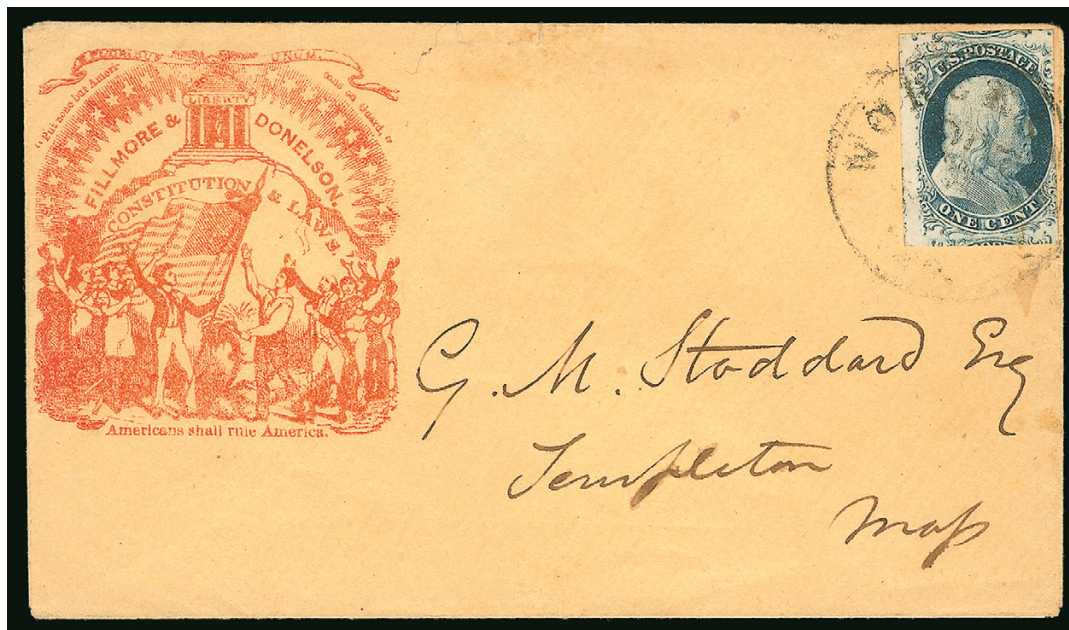 E PLURIBUS UNUM.
"Put none but Amer- icans on Guard,"
LIBERTY
FILLMORE & DONELSON.
CONSTITUTION & LAWS.
Americans shall rule America.
U.S. POSTAGE
ONE CENT
WOR
G. M. Stoddard Esq
Templeton
Mass